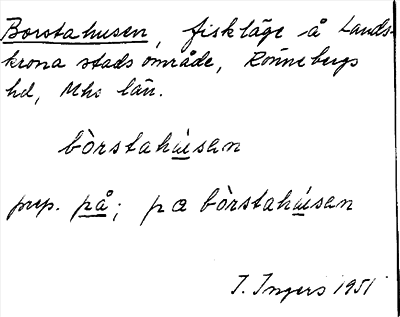 Borstahusen, fiskläge å Lands-
krona stads område, Rönnebergs
hd, Mhs län.
bòrstahúsen
prep. på; pa bòrstahúsen
I. Ingers 1951